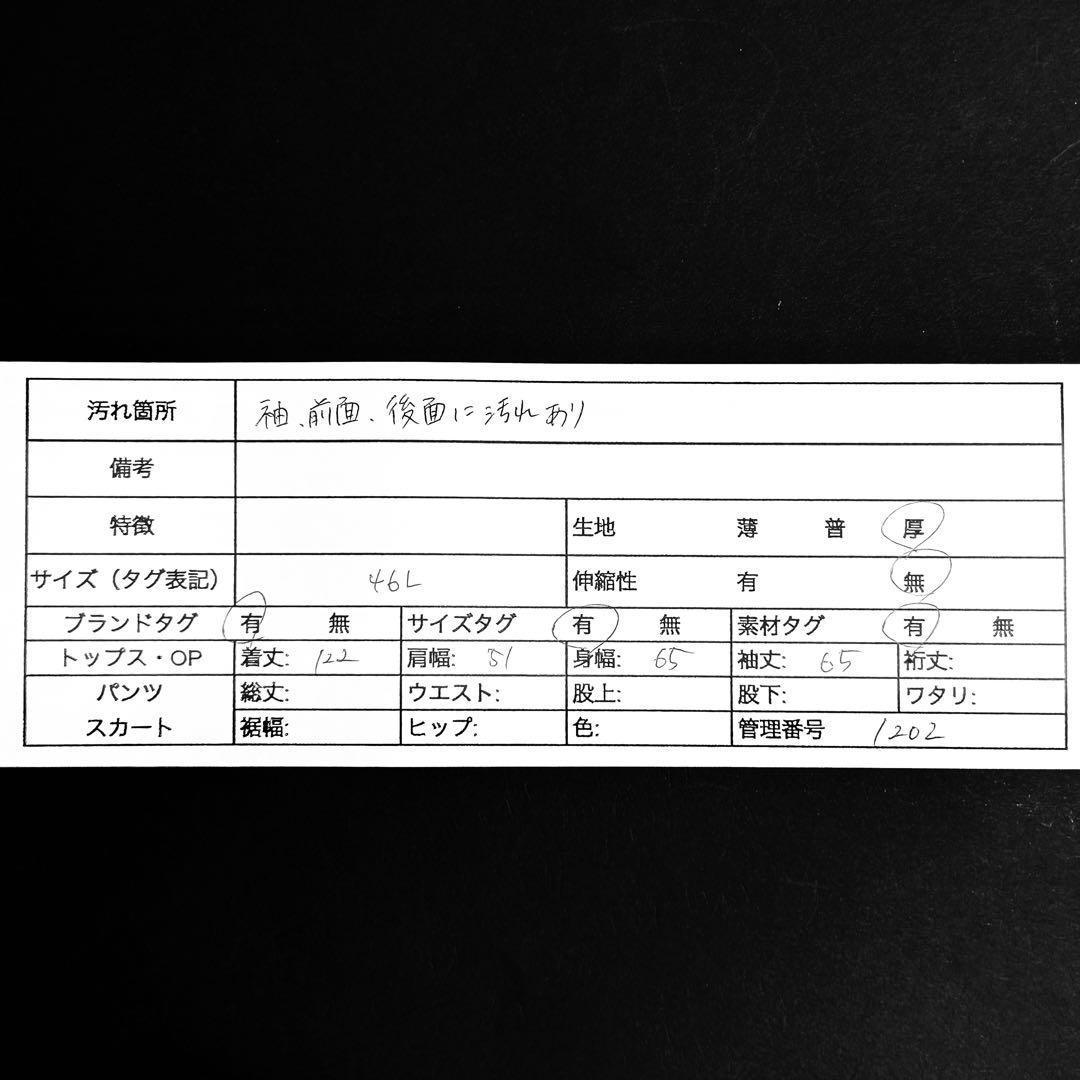 汚れ箇所 袖、前面、後面に汚れあり
備考
特徴 生地 薄 普 厚
サイズ（タグ表記） 46L 伸縮性 有 無
ブランドタグ 有 無 サイズタグ 有 無 素材タグ 有 無
トップス・OP 着丈: 122 肩幅: 51 身幅: 65 袖丈: 65 裄丈:
パンツ 総丈: ウエスト: 股上: 股下: ワタリ:
スカート 裾幅: ヒップ: 色: 管理番号 1202